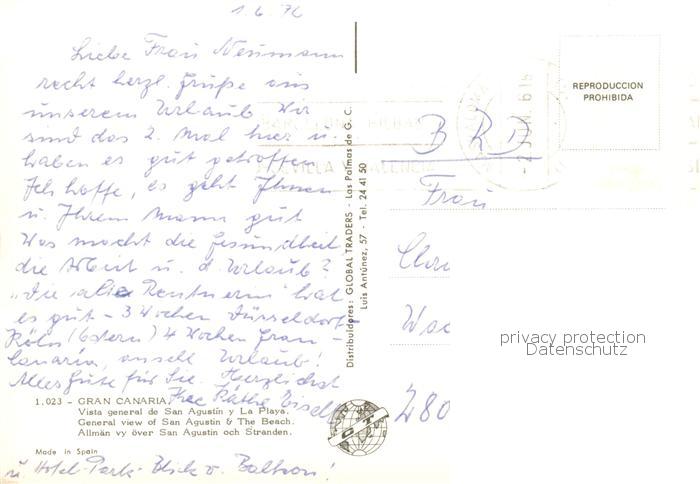 1.6.76
Liebe Frau Neumann
recht herzl. Grüße aus
unserem Urlaub. Wir
sind das 2. Mal hier u.
haben es gut getroffen
Ich hoffe, es geht Ihnen
u. Ihrem Mann gut
Was macht die Gesundheit
die Arbeit u. d. Urlaub?
"Die alte Rentnerin" hat
es gut - 3 Wochen Düsseldorf
Köln (Ostern) 4 Wochen Gran-
Canaria, anschl. Urlaub!
Alles Gute für Sie. Herzlichst
Ihre Käthe
1.023 - GRAN CANARIA.
Vista general de San Agustín y La Playa.
General view of San Agustin & The Beach.
Allmän vy över San Agustin och Stranden.
Made in Spain
u. Hotel-Park-Blick v. Balkon!
Distribuidores: GLOBAL TRADERS - Las Palmas de G. C.
Luis Antúnez, 57 - Tel. 24 41 50
REPRODUCCION
PROHIBIDA
BRD
Frau
280
privacy protection
Datenschutz